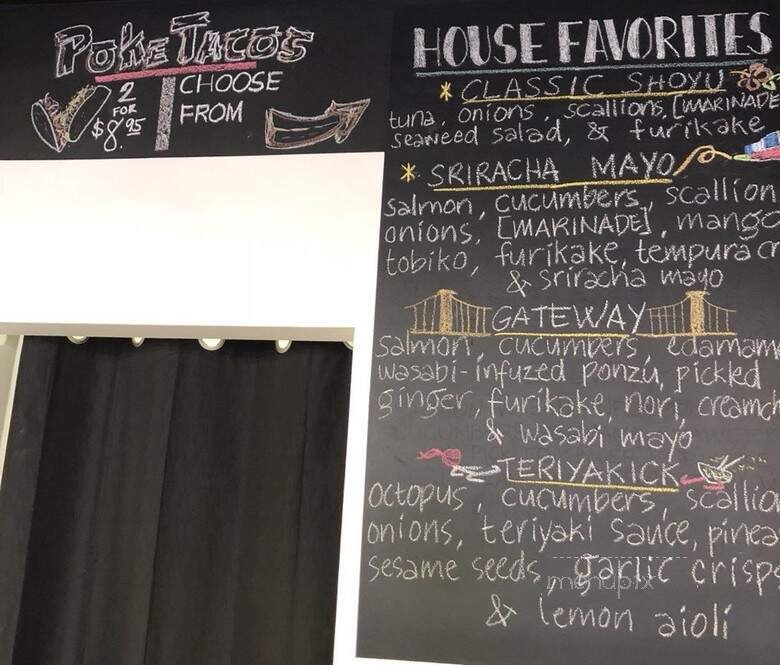 POKE TACOS
2 FOR $8.95
CHOOSE
FROM
HOUSE FAVORITES
* CLASSIC SHOYU
tuna, onions, scallions, [MARINADE
seaweed salad, & furikake
* SRIRACHA MAYO
salmon, cucumbers, scallion
onions, [MARINADE], mango
tobiko, furikake, tempura cr
& sriracha mayo
GATEWAY
salmon, cucumbers, edamam
wasabi-infuzed ponzu, pickled
ginger, furikake, nori, creamch
& wasabi mayo
TERIYAKICK
octopus, cucumbers, scallio
onions, teriyaki sauce, pinea
sesame seeds, garlic crisp
& lemon aioli
menupix